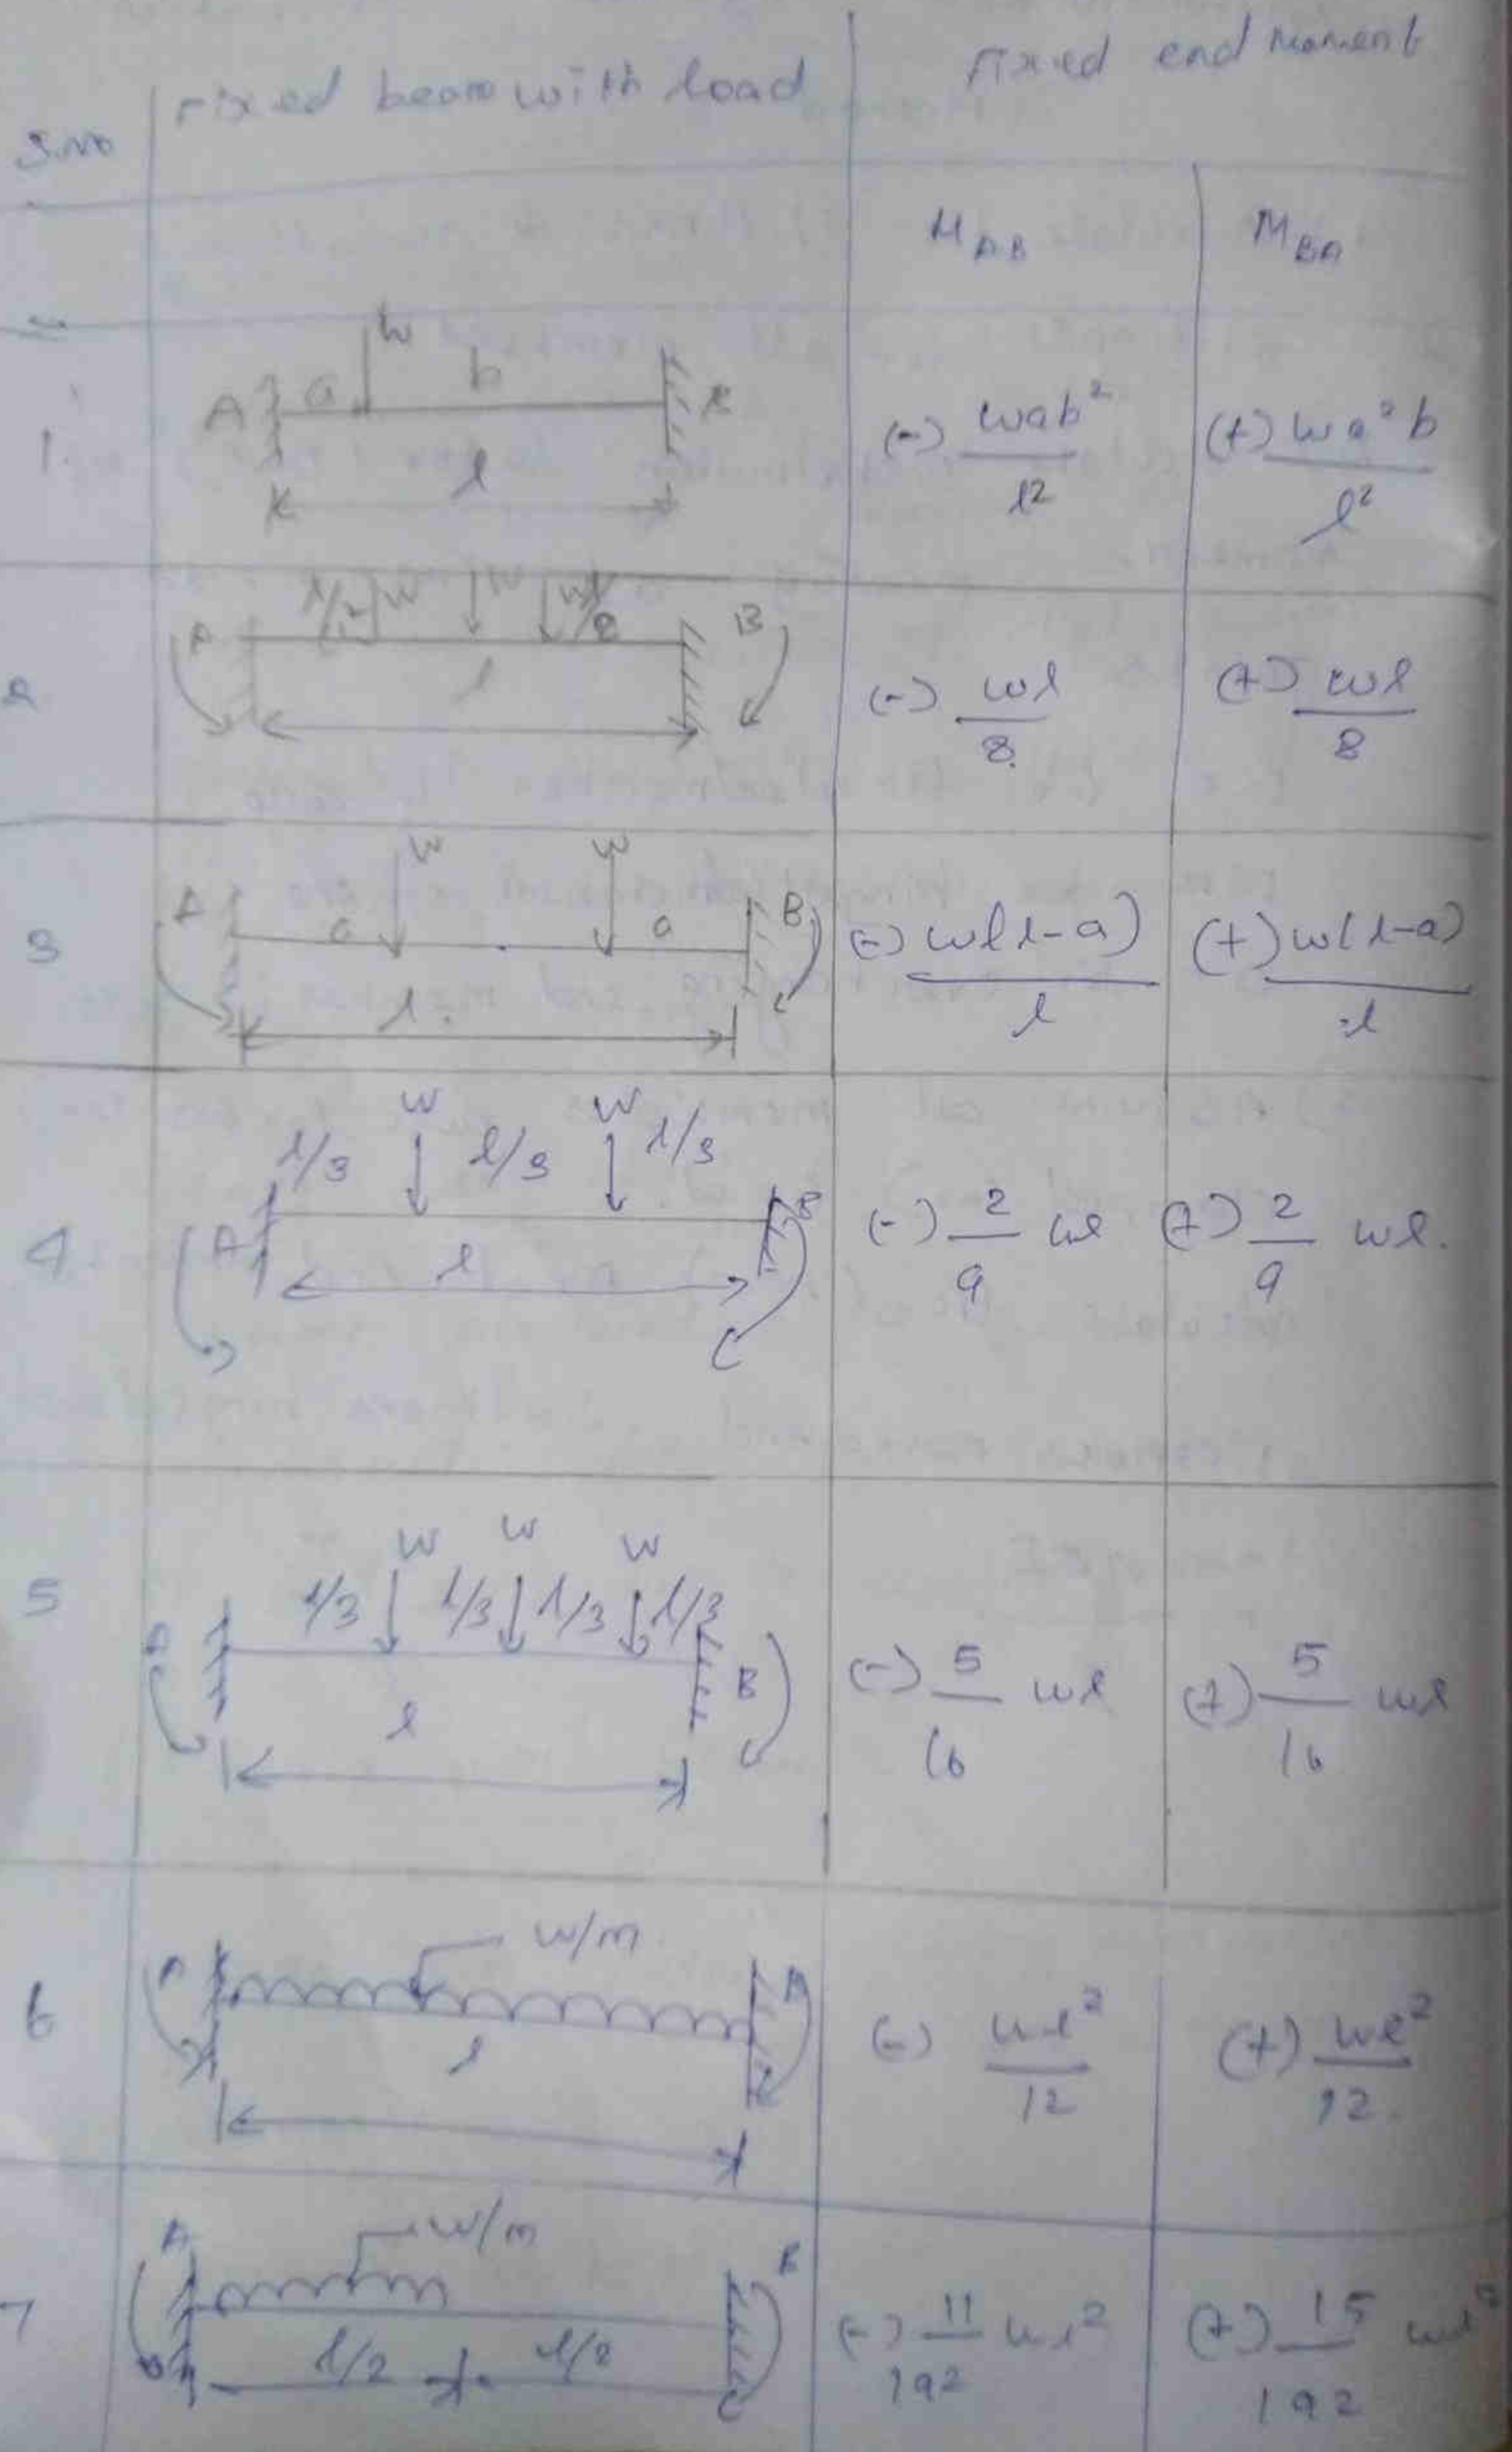 S.No
Fixed beam with load
Fixed end Moment
M AB
M BA
1.
A a W b
l
(-) wab² / l²
(+) wa²b / l²
2
A l/2 W W B
l
(-) wl / 8
(+) wl / 8
3
W W
A a a B
l
(-) w(l-a) / l
(+) w(l-a) / l
4
W W
l/3 l/3 l/3
A B
l
(-) 2/9 wl
(+) 2/9 wl.
5
W W W
l/3 l/3 l/3 l/3
A B
l
(-) 5/16 wl
(+) 5/16 wl
6
W/m
A
l
(-) wl² / 12
(+) wl² / 12.
7
A W/m B
l/2 l/2
(-) 11/192 wl²
(+) 15/192 wl²